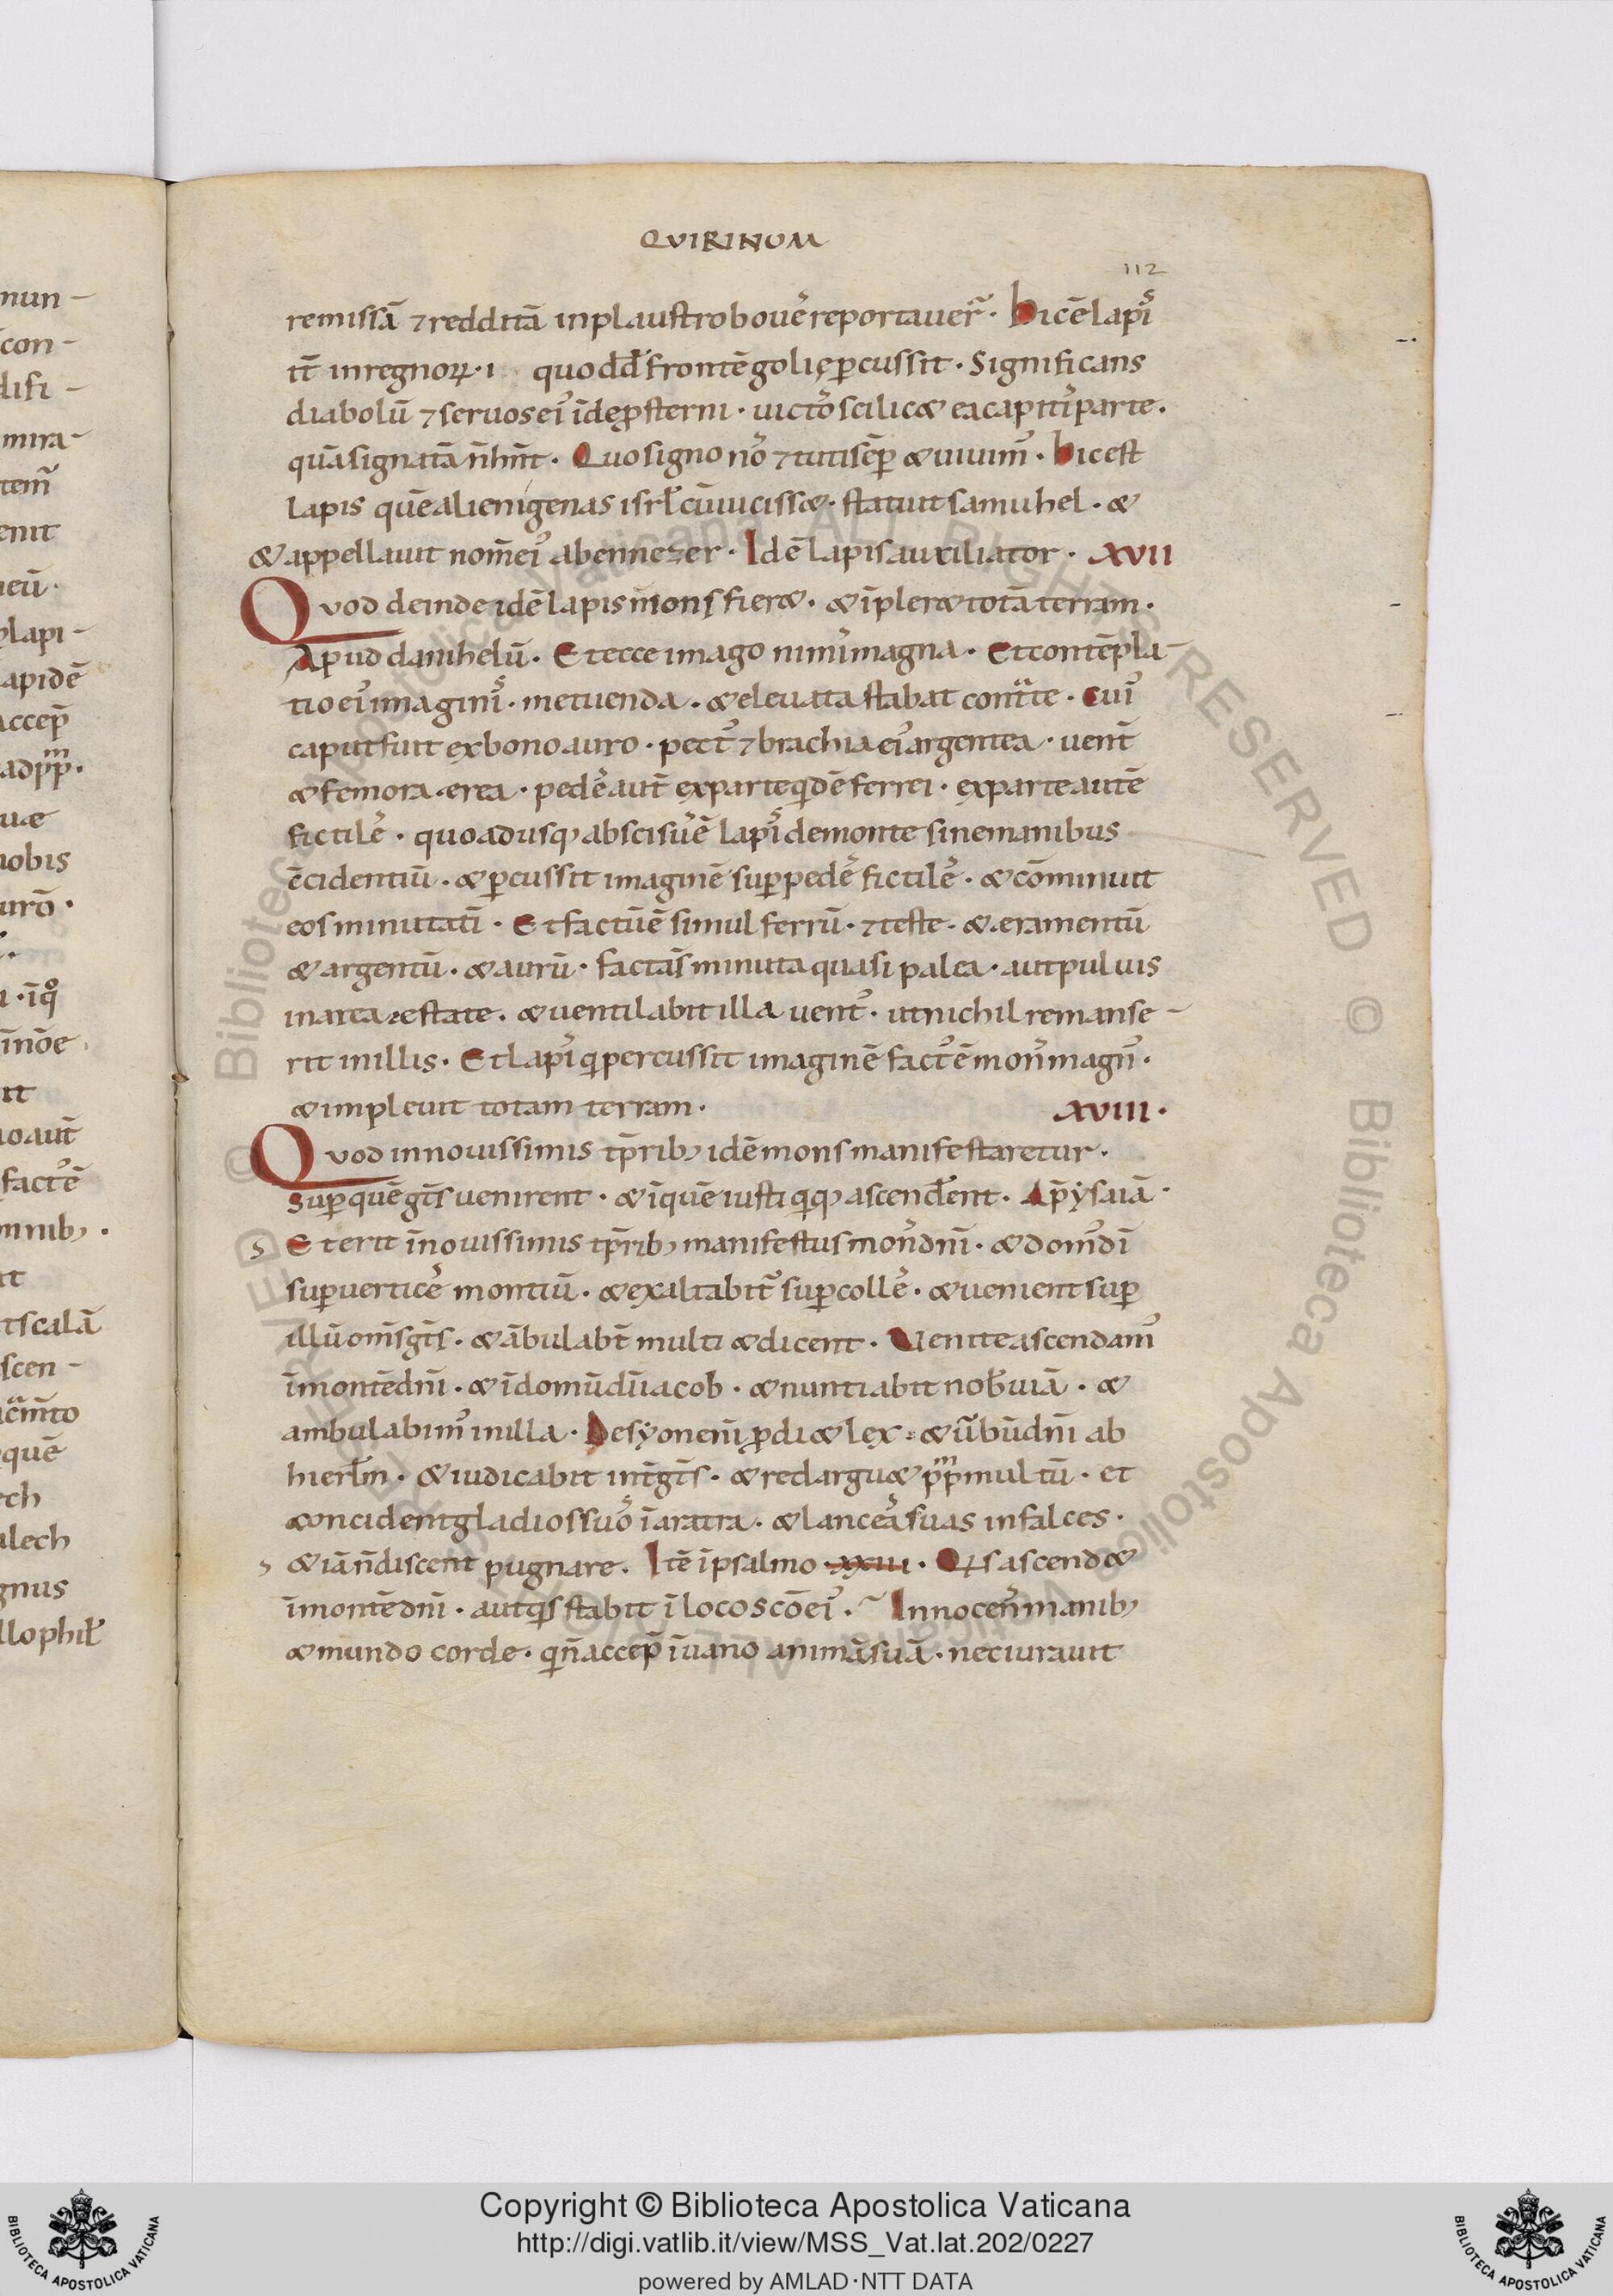 QVIRINUM
112
remissā ⁊ redditā in plaustro bouēs reportauer̄. Hic ē lapis
it̄ in regnoꝝ · i quo dd̄ frontē golię ꝑcussit. Significans
diabolū ⁊ seruos ei᾽ īde ꝓsterni. uictos scilicet ea capitis parte.
quā signatā n̄ hn̄t. Quo signo nos ⁊ tuti sēp et uiuim᾽. Hic est
Lapis quē alienigenas isrl̄ cū uicisset. statuit samuhel. et
& appellauit nom̄ ei᾽ abennezer. Id ē lapis auxiliator. XVII
Quod deinde idē lapis mons fieret. et īpleret totā terram.
Apud danihelū. Et ecce imago nimis magna. Et contēpla-
tio ei᾽ imaginis. metuenda. et eleuata stabat contra te. Cui᾽
caput fuit ex bono auro. pect᾽ ⁊ brachia ei᾽ argentea. uent̄
et femora ærea. pedes aut̄ ex parte qidē ferrei. ex parte autē
fictiles. quo adusq; abscisus ē lapis de monte sine manibus
c̄cidentiū. et ꝑcussit imaginē suꝑ pedes fictiles. et cōminuit
eos minutatī. Et factū ē simul ferrū. ⁊ teste. et æramentū
et argentū. et aurū. facta s̄ minuta quasi palea. aut puluis
in area æstate. et uentilabit illa uent᾽. ut nichil remanse-
rit in illis. Et lapis qi percussit imaginē fact᾽ ē mons magn᾽.
et impleuit totam terram. XVIII.
Quod in nouissimis tp̄rib; idē mons manifestaretur.
Suꝑ quē gt̄s uenirent. et ī quē iusti qiq; ascenderent. Ap̄ ysaiā.
s Et erit ī nouissimis tp̄rib; manifestus mons dn̄i. et dom᾽ dī
suꝑ uertices montiū. et exaltabit᷑ suꝑ colles. et uenient suꝑ
illū om̄s gt̄s. et ābulabt̄ multi et dicent. Venite ascendam᾽
ī montē dn̄i. et ī domū dī iacob. et nuntiabit nob̄ uiā. et
ambulabim᾽ in illa. De syon enī ꝓdiet lex. et ūbū dn̄i ab
hierlm̄. Et iudicabit int̄ gt̄s. et redarguet pp̄m multū. et
concident gladios suos ī aratra. et lanceas suas in falces.
s et iā n̄ discent pugnare. Itē ī psalmo xxiii. Qis ascendet
ī montē dn̄i. aut qis stabit ī loco sc̄o ei᾽. Innocens manib;
et mundo corde. qi n̄ accep̄ ī uano animā suā. nec iurauit
mun-
con-
difi-
mira-
tem̄
enit
lapi-
apidē
accep̄
uæ
nobis
fact᾽ ē
mnib;.
t scalā
scen-
quē
ech
alech
gnus
llophil̄
Copyright © Biblioteca Apostolica Vaticana
http://digi.vatlib.it/view/MSS_Vat.lat.202/0227
powered by AMLAD·NTT DATA
BIBLIOTECA APOSTOLICA VATICANA
BIBLIOTECA APOSTOLICA VATICANA